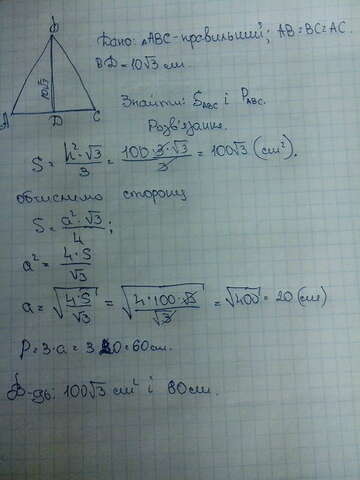 B
10√3
A
D
C
Дано: △ABC - правильний; AB = BC = AC.
BD = 10√3 см.
Знайти: S_ABC і P_ABC.
Розв'язання.
S = h²·√3/3 = 100·3·√3/3 = 100√3 (см²).
обчислимо сторону
S = a²·√3/4;
a² = 4·S/√3
a = √(4·S/√3) = √(4·100·√3/√3) = √400 = 20 (см)
P = 3·a = 3·20 = 60 см.
В-дь: 100√3 см² і 60 см.